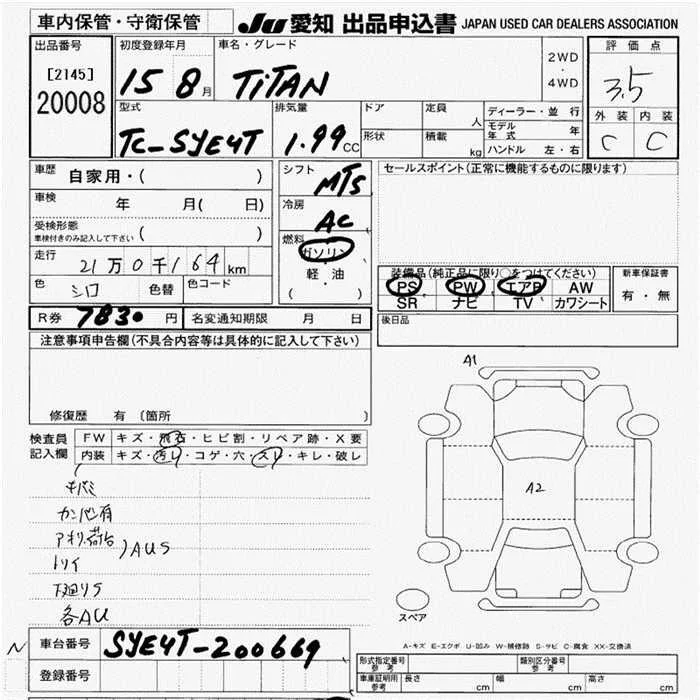 車内保管・守衛保管 JU 愛知 出品申込書 JAPAN USED CAR DEALERS ASSOCIATION
出品番号 初度登録年月 車名・グレード 評価点
[2145] 20008 15 8月 TiTAN 2WD・4WD 3.5
型式 排気量 ドア 定員 人 ディーラー・並行 外装 内装
TC-SYE4T 1.99 CC 形状 積載 kg モデル年式 年 C C
ハンドル 左・右
車歴 自家用・( ) シフト MT5 セールスポイント(正常に機能するものに限ります)
車検 年 月( 日) 冷房 AC
受検形態 車検付きのみ記入して下さい ( ) 燃料 ガソリン・軽・油 ( )
走行 21万0千164km 装備品(純正品に限り○をつけてください) 新車保証書
色 シロ 色替 色コード PS PW エアB AW 有・無
SR ナビ TV カワシート
R券 7830円 名変通知期限 月 日 後日品
注意事項申告欄(不具合内容等は具体的に記入して下さい)
A1
修復歴 有〔箇所
検査員記入欄 FW キズ・飛石・ヒビ割・リペア跡・X要
内装 キズ・汚レ・コゲ・穴・スレ・キレ・破レ
キバミ
A2
カンバン有
アオリ、荷台
トリイ )AUS
下廻りS
各AU
スペア
A-キズ E-エクボ U-凹み W-補修跡 S-サビ C-腐食 XX-交換済
N 車台番号 SYE4T-200669
登録番号
形式指定番号 参考 類別区分番号 参考
車庫証明用 参考 長さ cm 幅 cm 高さ cm